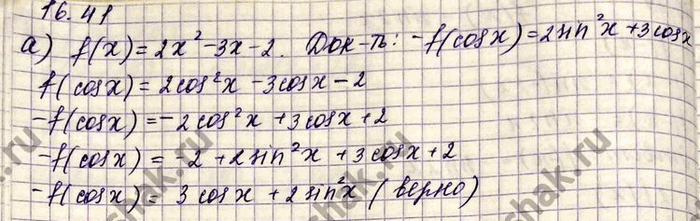 16.41
а) f(x) = 2x² - 3x - 2. Док-ть: -f(cosx) = 2sin²x + 3cosx
f(cosx) = 2cos²x - 3cosx - 2
-f(cosx) = -2cos²x + 3cosx + 2
-f(cosx) = -2 + 2sin²x + 3cosx + 2
-f(cosx) = 3cosx + 2sin²x (верно)